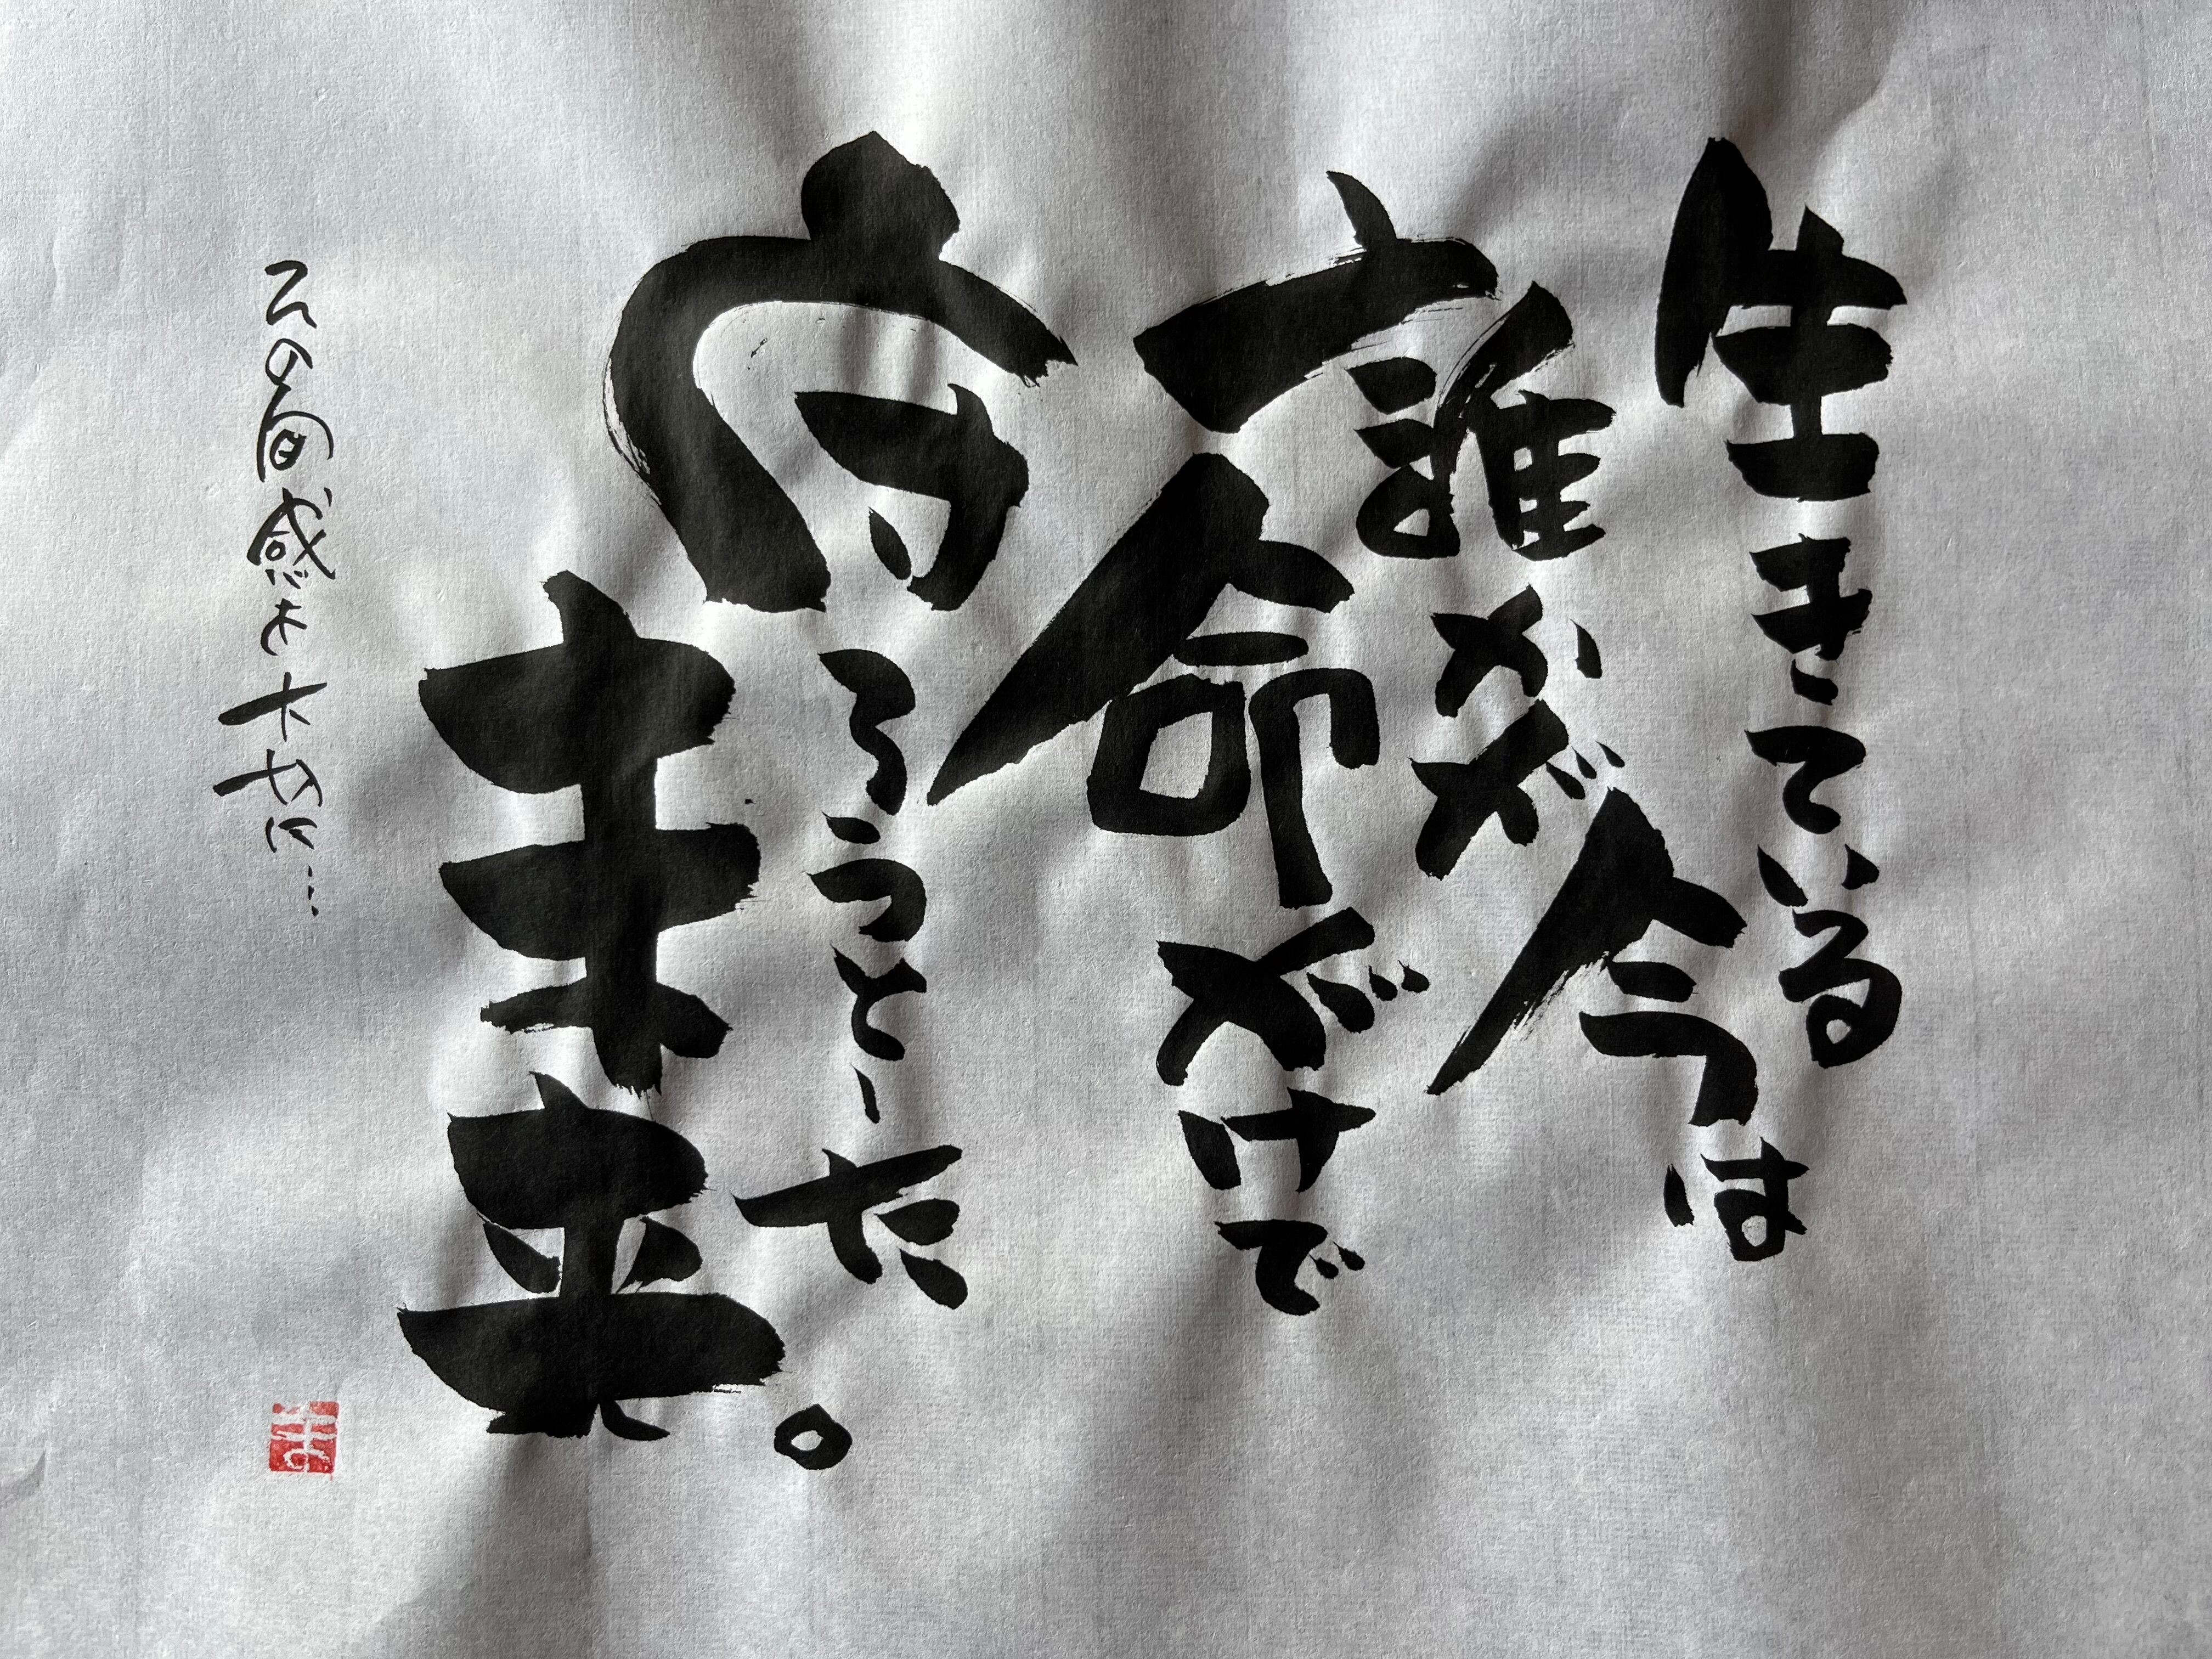 生きている
今は
誰かが
一命がけで
守ろうとした
未来。
この旬感を大切に…